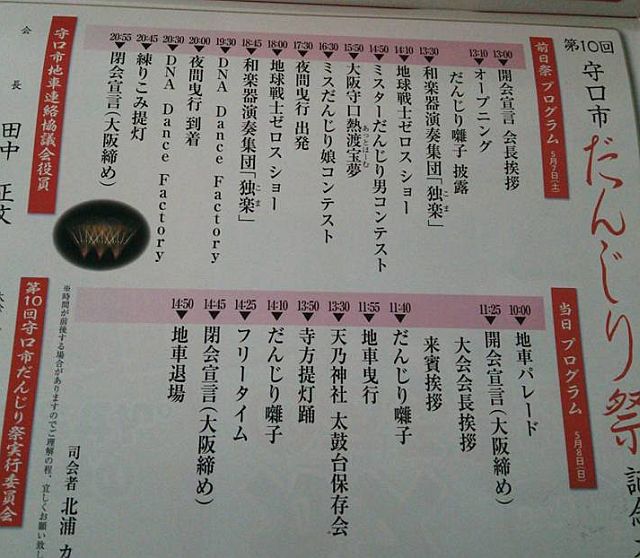 第10回
守口市
だんじり祭
前日祭 プログラム 5月7日(土)
13:00 開会宣言 会長挨拶
13:10 オープニング
だんじり囃子 披露
13:30 和楽器演奏集団「独楽」
こま
14:10 地球戦士ゼロス ショー
14:50 ミスターだんじり男コンテスト
15:50 大阪守口熱渡宝夢
あっとほーむ
16:30 ミスだんじり娘コンテスト
17:30 夜間曳行 出発
18:00 地球戦士ゼロス ショー
18:45 和楽器演奏集団「独楽」
こま
19:30 DNA Dance Factory
20:00 夜間曳行 到着
20:30 DNA Dance Factory
20:45 練りこみ提灯
20:55 閉会宣言(大阪締め)
守口市地車連絡協議会役員
会長 田中 正文
当日 プログラム 5月8日(日)
10:00 地車パレード
11:25 開会宣言(大阪締め)
大会会長挨拶
来賓挨拶
11:40 だんじり囃子
11:55 地車曳行
13:30 天乃神社 太鼓台保存会
13:50 寺方提灯踊
14:10 だんじり囃子
14:25 フリータイム
14:45 閉会宣言(大阪締め)
14:50 地車退場
司会者 北浦
※時間が前後する場合がありますのでご理解の程、宜しくお願い致し
第10回守口市だんじり祭実行委員会